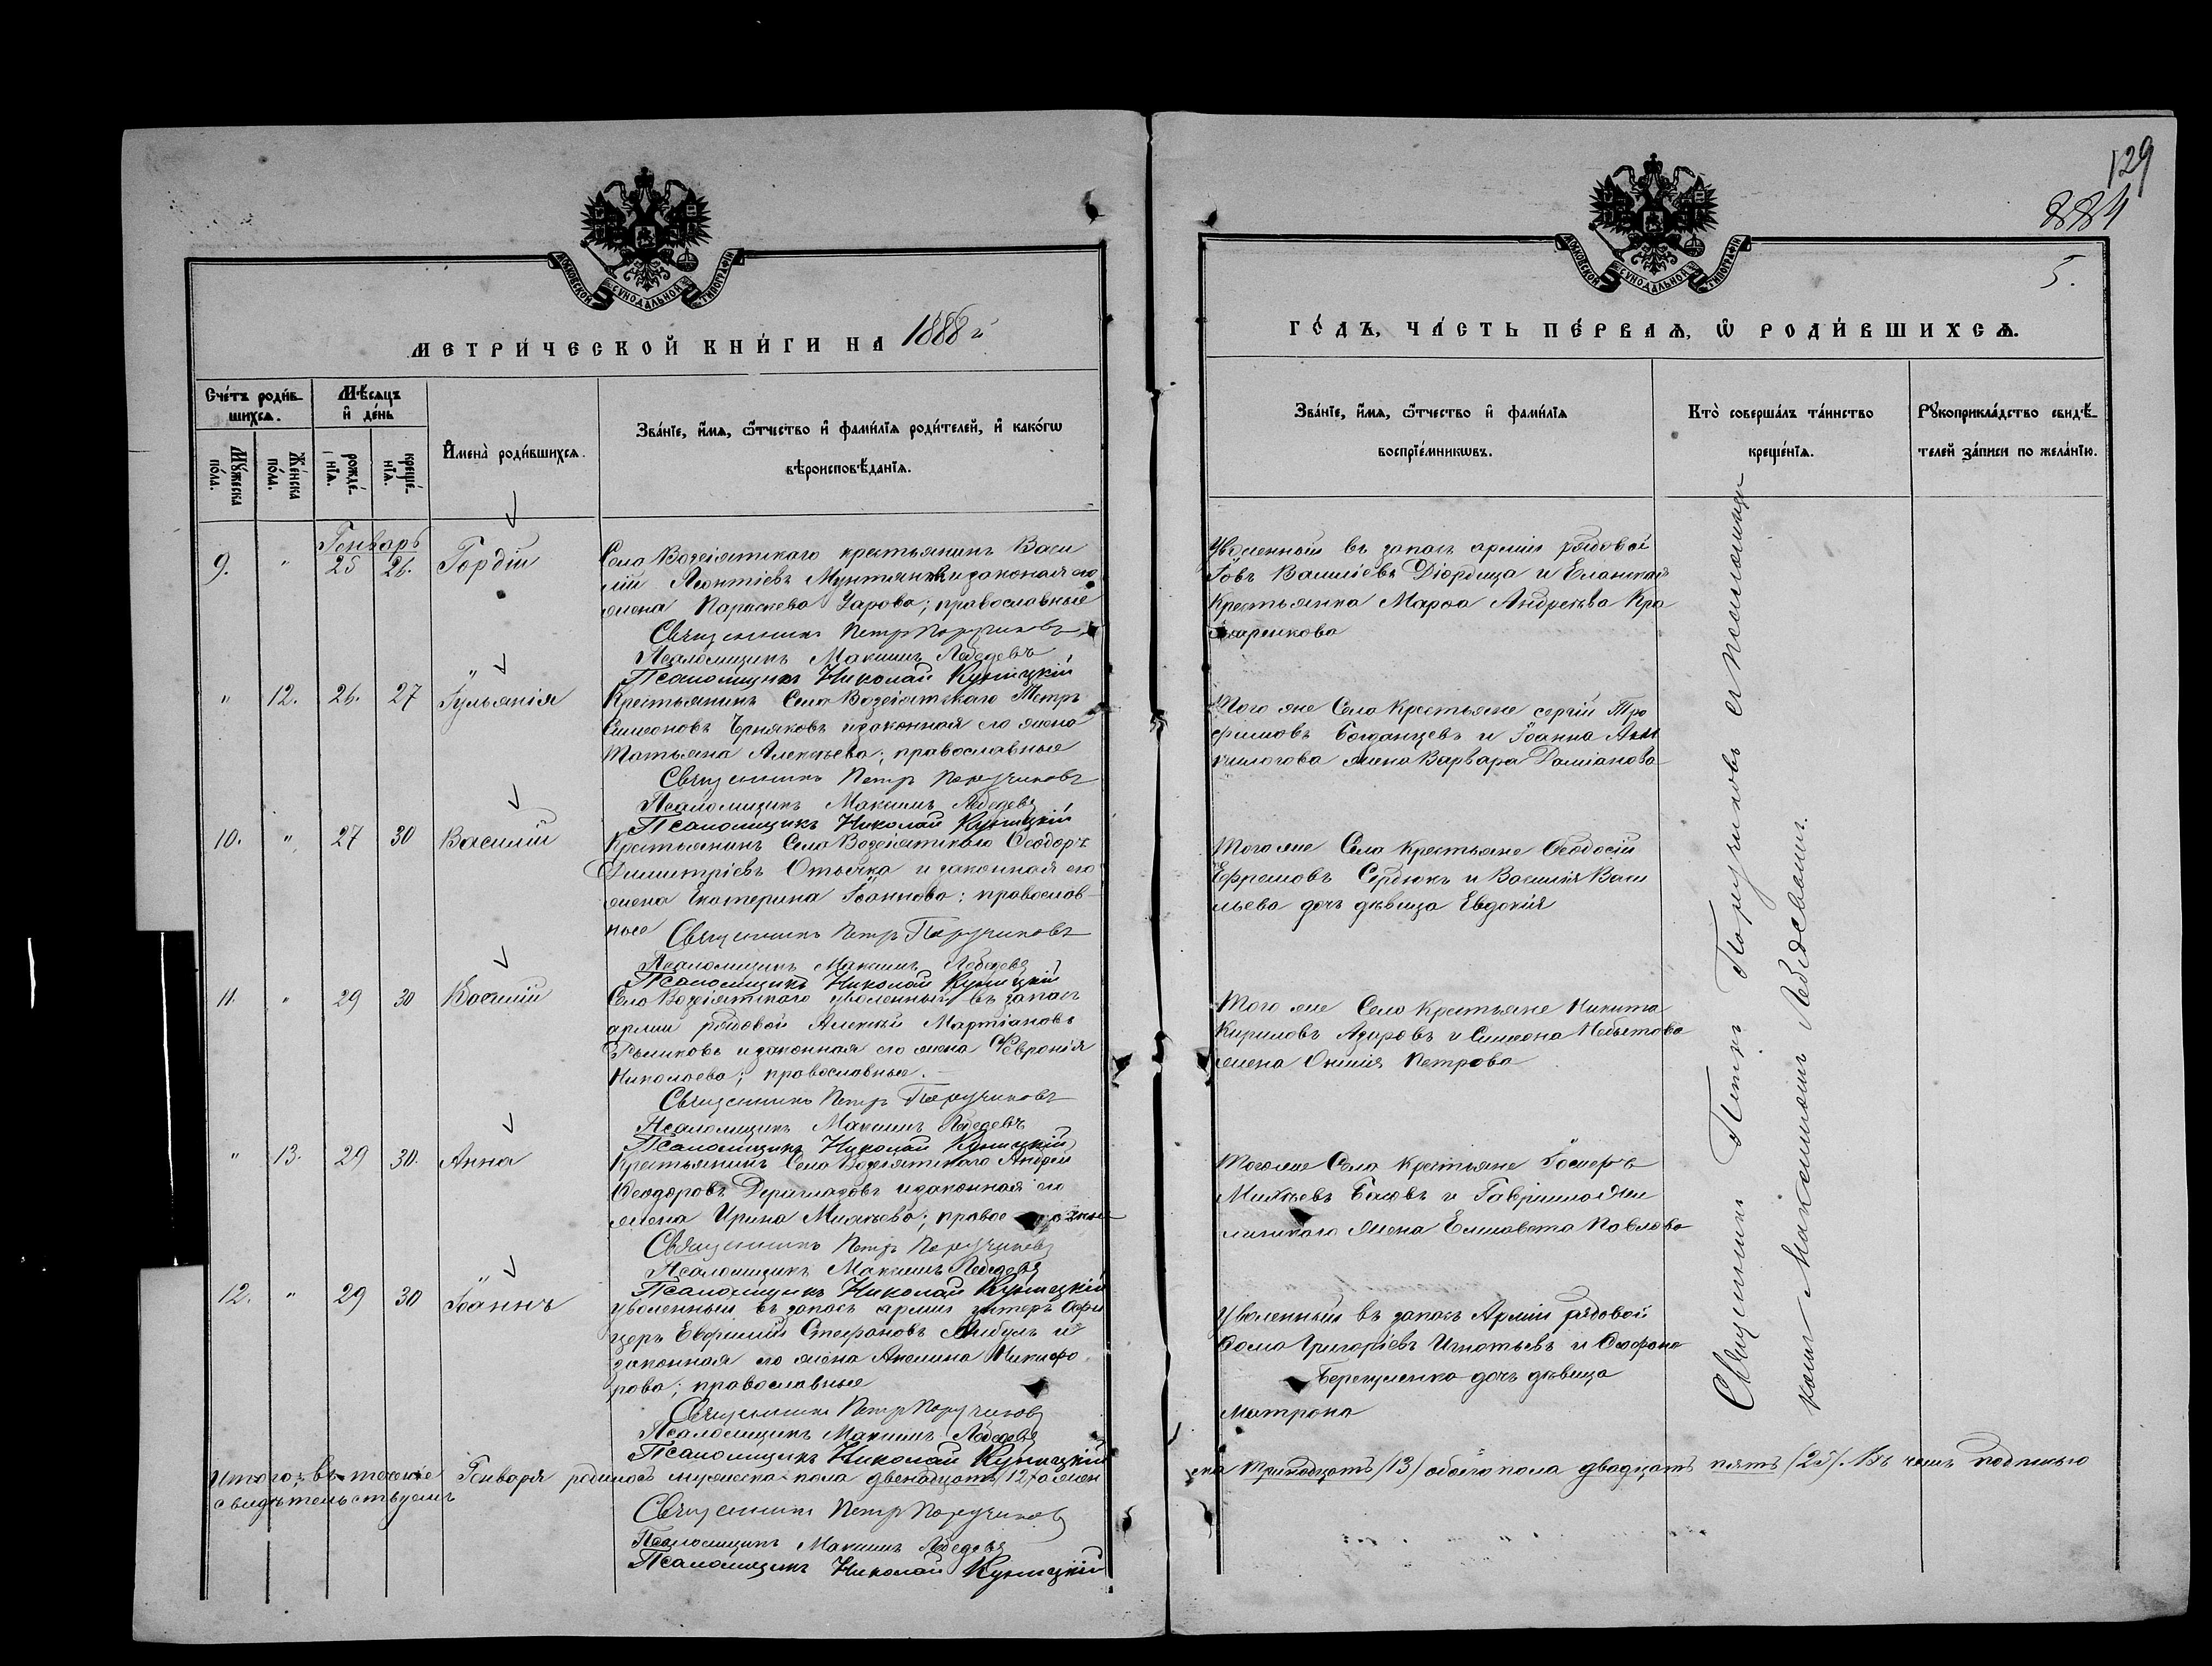 129
884
5.
МОСКОВСКОЙ СѴНОДАЛЬНОЙ ТИПОГРАФІИ
МЕТРИ́ЧЕСКОЙ КНИ́ГИ НА 1888 й
Сче́тъ роди́в-
шихсѧ.
Мѣ́сѧцъ
и҆ де́нь
Мꙋ́жеска по́ла.
Же́нска по́ла.
рожде́-
нїѧ.
креще́-
нїѧ.
И҆мена̀ роди́вшихсѧ.
Зва́нїе, и҆́мѧ, ѻ҆́тчество и҆ фами́лїѧ роди́телей, и҆ како́гѡ
вѣроисповѣ́данїѧ.
Генварь
9. " 25 26. Гордій
Села Возсіятскаго крестьянинъ Васи
лій Леонтіевъ Мунтянъ и законая его
жена Параскева Уарова; православные
Священникъ Петръ Поручиковъ
Псаломщикъ Максимъ Лебедевъ
Псаломщикъ Николай Куницкій
" 12. 26. 27 Іульянія
Крестьянинъ Села Возсіятскаго Петръ
Симеоновъ Черняковъ и законная его жена
Татьяна Алексѣева; православные
Священникъ Петръ Поручиковъ
Псаломщикъ Максимъ Лебедевъ
Псаломщикъ Николай Куницкій
10. " 27 30 Василій
Крестьянинъ Села Возсіятскаго Ѳеодоръ
Димитріевъ Отъ и законная его
жена Екатерина Іоаннова; православ-
ные Священникъ Петръ Поручиковъ
Псаломщикъ Максимъ Лебедевъ
Псаломщикъ Николай Куницкій
11. " 29 30 Василій
Села Возсіятскаго уволенный въ запасъ
арміи рядовой Алексѣй Мартіановъ
и законная его жена Февронія
Николаева; православные.
Священникъ Петръ Поручиковъ
Псаломщикъ Максимъ Лебедевъ
Псаломщикъ Николай Куницкій
" 13. 29 30. Анна
Крестьянинъ Села Возсіятскаго Андрей
Ѳеодоровъ Дериглазовъ и законная его
жена Ирина Михѣева; правос
Священникъ Петръ Поручиковъ
Псаломщикъ Максимъ Лебедевъ
Псаломщикъ Николай Куницкій
12. " 29 30 Іоаннъ
Уволенный въ запасъ арміи унтеръ Офи
церъ Евфимій Стефановъ и
законная его жена Акилина Никифо
рова; православные
Священникъ Петръ Поручиковъ
Псаломщикъ Максимъ Лебедевъ
Псаломщикъ Николай Куницкій
Итого: въ теченіе Генваря родилось мужеска пола двенадцать /12/ а жен
свидѣтельствуемъ
Священникъ Петръ Поручиковъ
Псаломщикъ Максимъ Лебедевъ
Псаломщикъ Николай Куницкій
МОСКОВСКОЙ СѴНОДАЛЬНОЙ ТИПОГРАФІИ
ГО́ДЪ, ЧА́СТЬ ПЕ́РВАѦ, Ѽ РОДИ́ВШИХСѦ.
Зва́нїе, и҆́мѧ, ѻ҆́тчество и҆ фами́лїѧ
воспрїе́мникѡвъ.
Кто̀ соверша́лъ та́инство
креще́нїѧ.
Рꙋкоприкла́дство свидѣ́-
телей за́писи по жела́нїю.
Уволенный въ запасъ арміи рядовой
Іовъ Василіевъ Діордица и Еланская
Крестьянка Марѳа Андреева Кра
Того же Села Крестьяне сергій Тро
фимовъ Богданцевъ и Іоанна
жена Варвара Даміанова
Того же Села Крестьяне Ѳеодосій
Ефремовъ Сердюкъ и Василія Васи
льева дочь дѣвица Евдокія
Того же Села Крестьяне Никита
Кириловъ Азаровъ и Симеона Небытова
жена Онисія Петрова
Того же Села Крестьяне Іосифъ
Михѣевъ Басовъ и Гавріила
жена Елисавета Павлова
Уволенный въ запасъ Арміи рядовой
Ѳома Григоріевъ Игнатьевъ и Стефана
Берещенка дочь дѣвица
Матрона
Священникъ Петръ Поручиковъ съ псаломщи
комъ Максимомъ Лебедевымъ.
ска тринадцать /13/ обоего пола двадцать пять /25/. Въ чемъ подписью